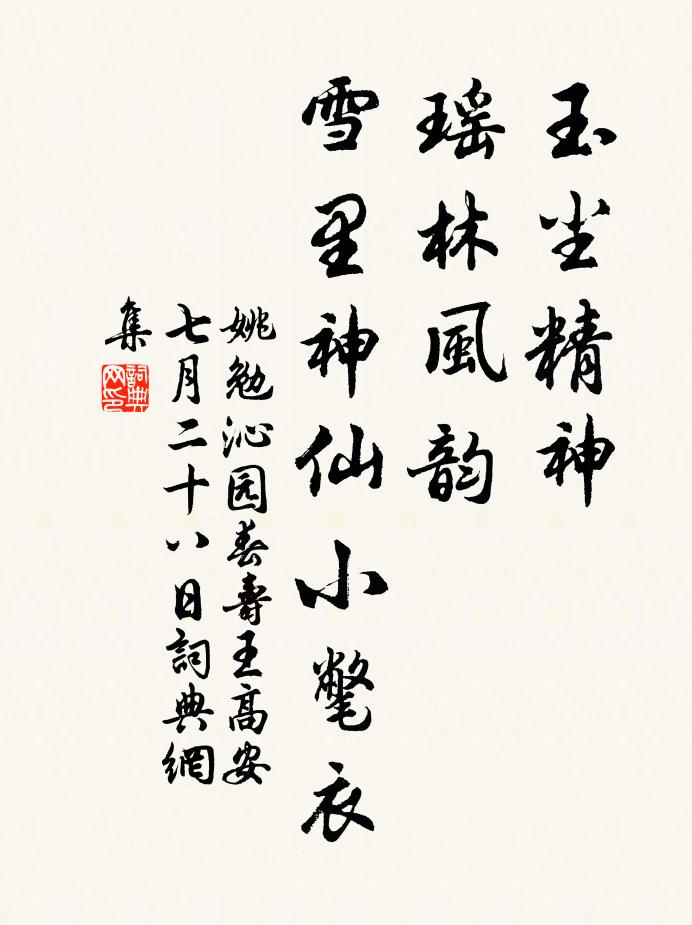 玉尘精神
瑶林風韵
雪里神仙小氅衣
姚勉沁园春壽王高安
七月二十八日詞典網
集
詞典
网印